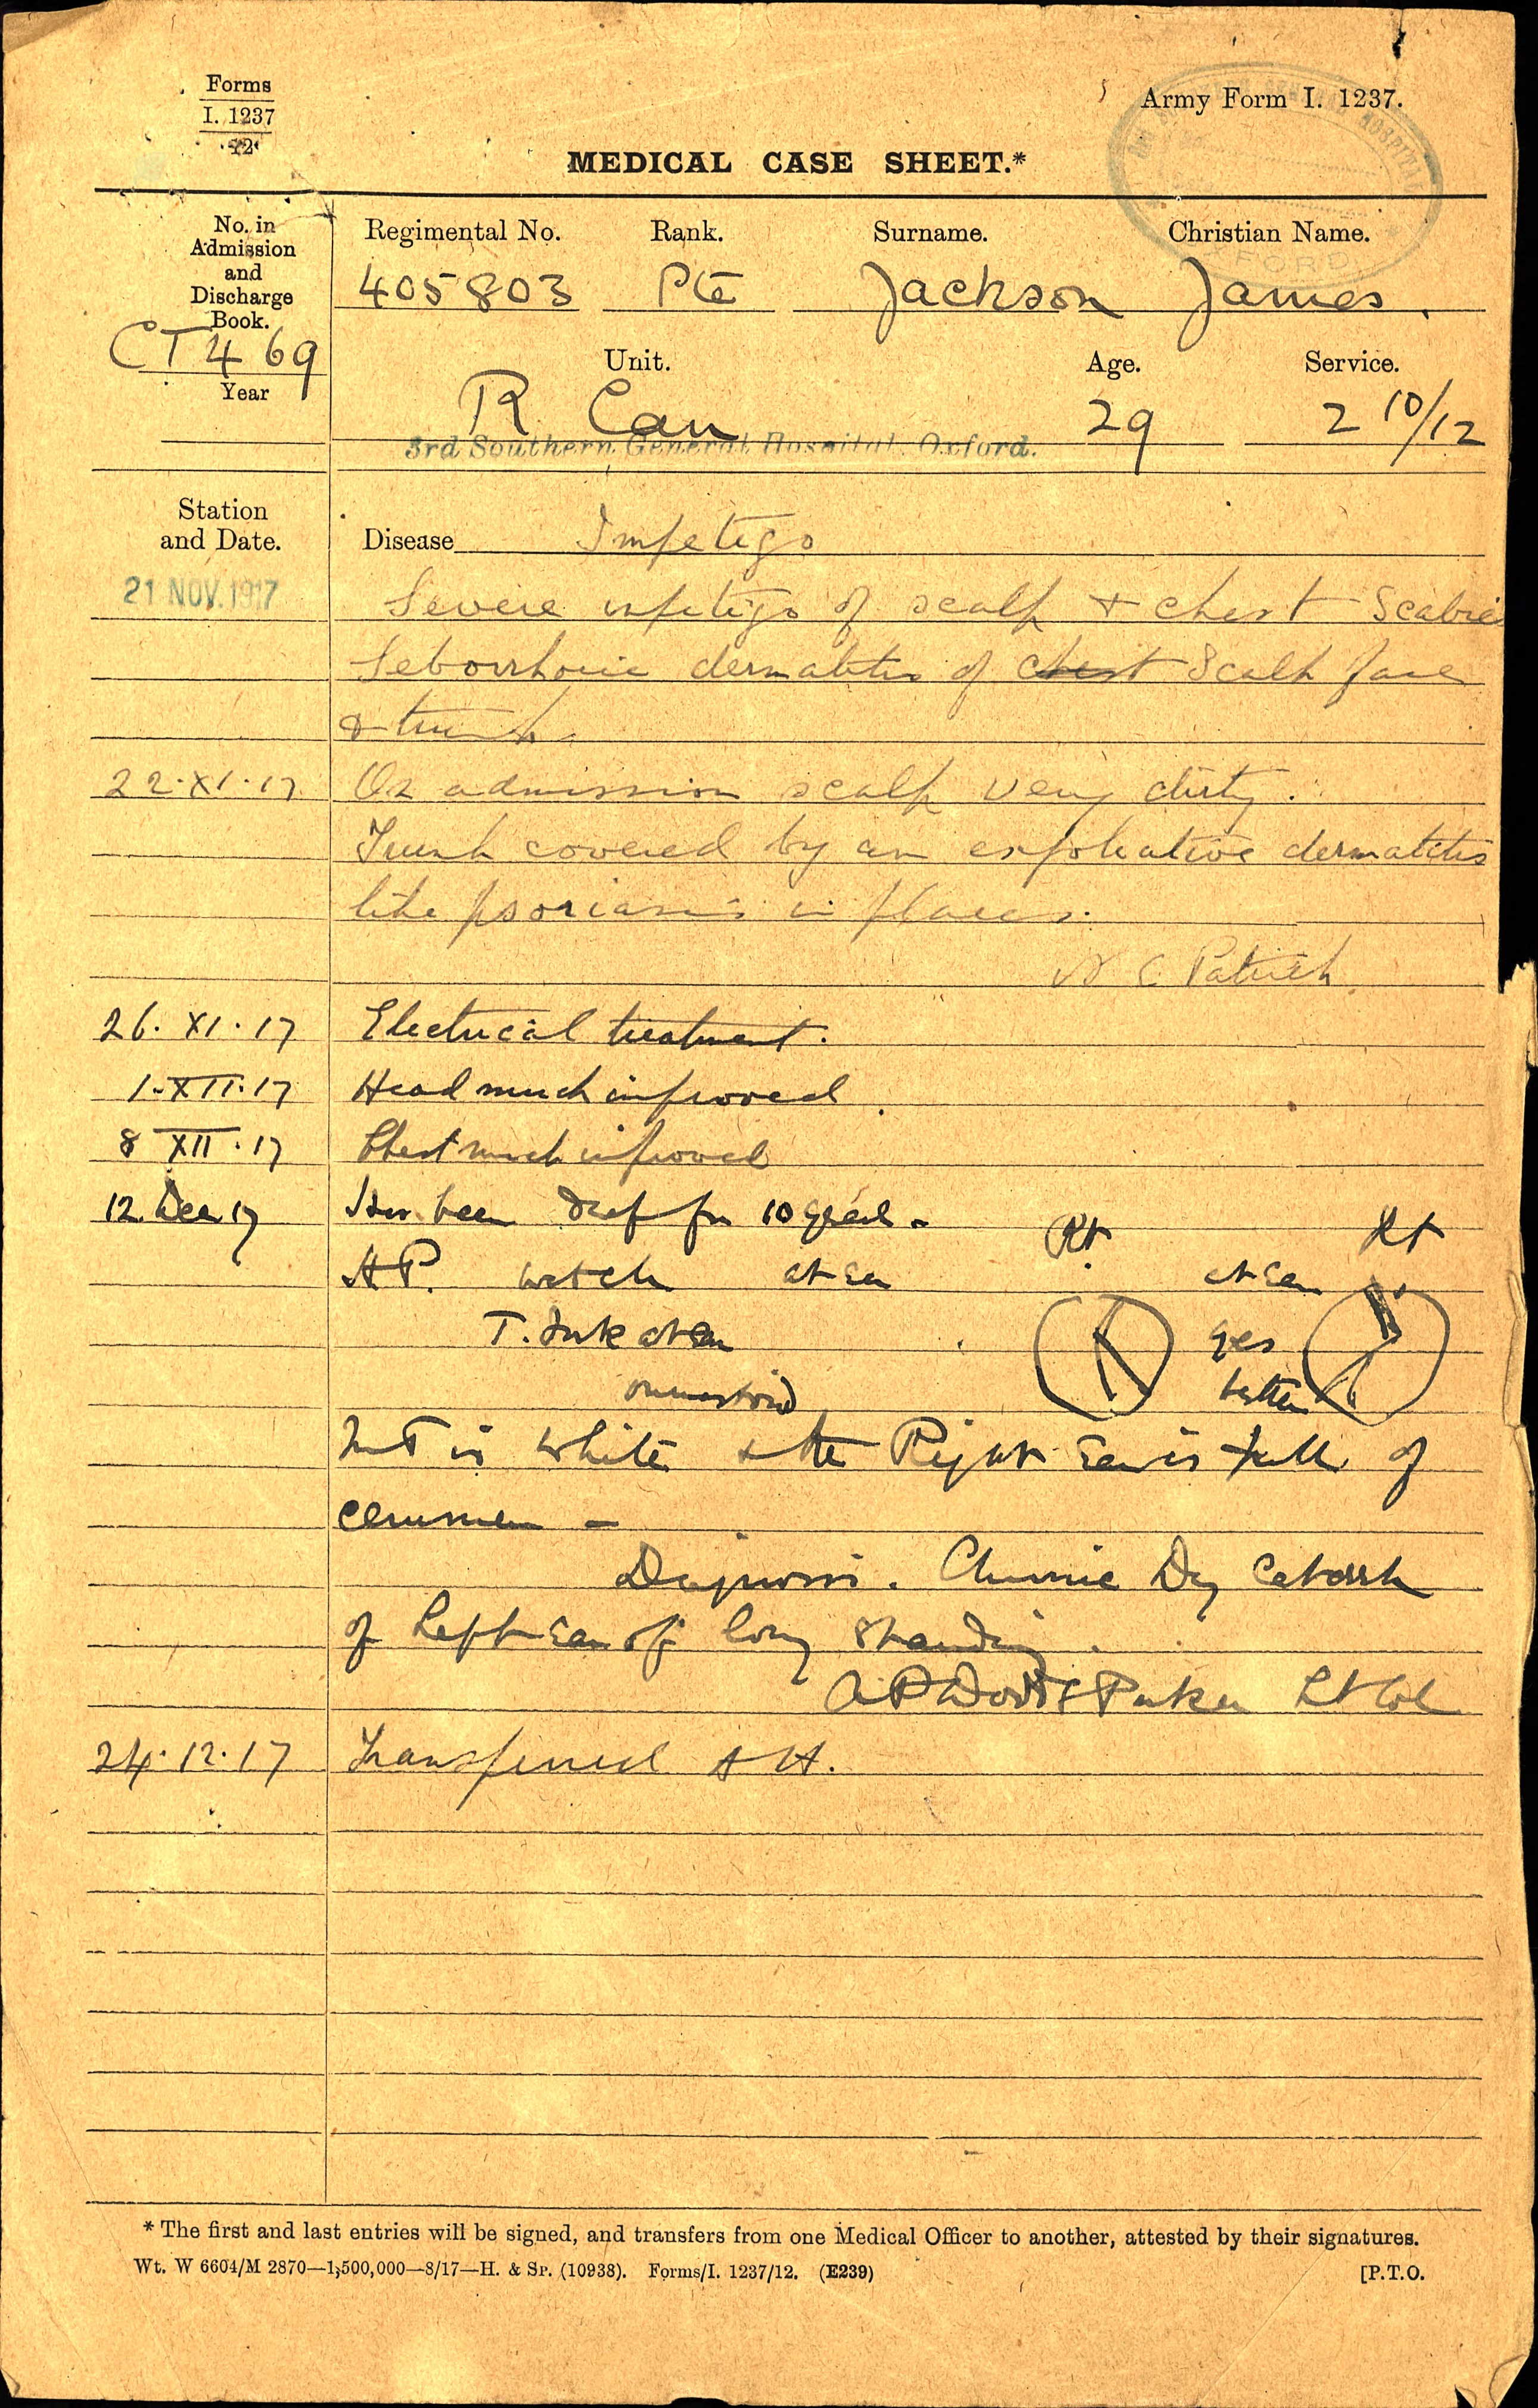 Forms
I. 1237
12
Army Form I. 1237.
HOSPITAL
FORD
MEDICAL CASE SHEET.*
No. in
Admission
and
Discharge
Book.
CT 469
Year
Regimental No. Rank. Surname. Christian Name.
405803 Pte Jackson James.
Unit. Age. Service.
R Can 29 2 10/12
3rd Southern General Hospital, Oxford.
Station
and Date.
Disease Impetigo
21 NOV. 1917 Severe impetigo of scalp + chest Scabies
Seborrhoeic dermatitis of chest Scalp face
& trunk.
22.XI.17 On admission scalp very dirty.
Trunk covered by an exfoliative dermatitis
like psoriasis in places.
C Patrick
26.XI.17 Electrical treatment.
1.XII.17 Head much improved.
8 XII.17 Chest much improved
12 Dec 17 Has been deaf for 10 years -
Rt
watch at ear at ear
T. Fork at ear yes
on mastoid better
is white & the Right Ear is full of
cerumen -
Diagnosis. Chronic Dry Catarrh
of Left Ear of long standing.
Parker Lt Col
24.12.17 Transferred A H.
* The first and last entries will be signed, and transfers from one Medical Officer to another, attested by their signatures.
Wt. W 6604/M 2870—1,500,000—8/17—H. & Sp. (10938). Forms/I. 1237/12. (E239) [P.T.O.